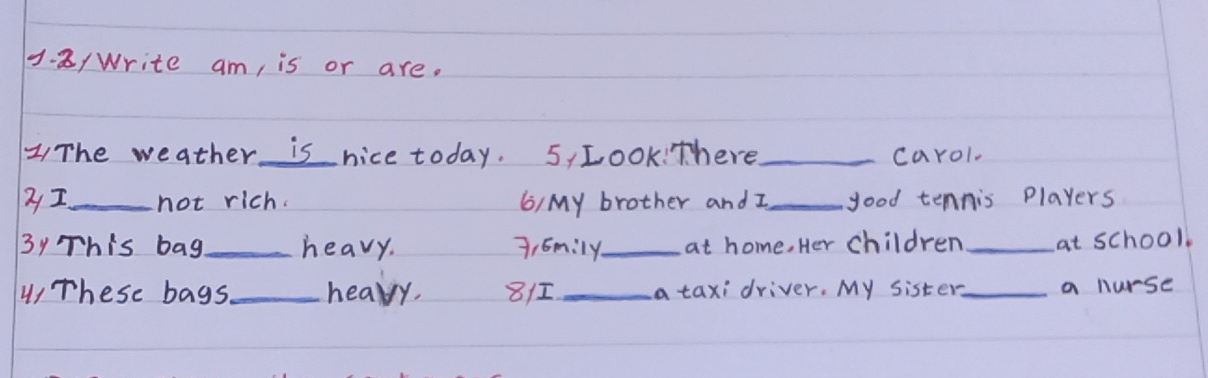 1.2/ Write am, is or are.
1/ The weather is nice today. 5/ Look! There ______ Carol.
2/ I ______ not rich. 6/ My brother and I ______ good tennis Players
3/ This bag ______ heavy. 7/ Emily ______ at home. Her children ______ at school.
4/ These bags ______ heavy. 8/ I ______ a taxi driver. My sister ______ a nurse